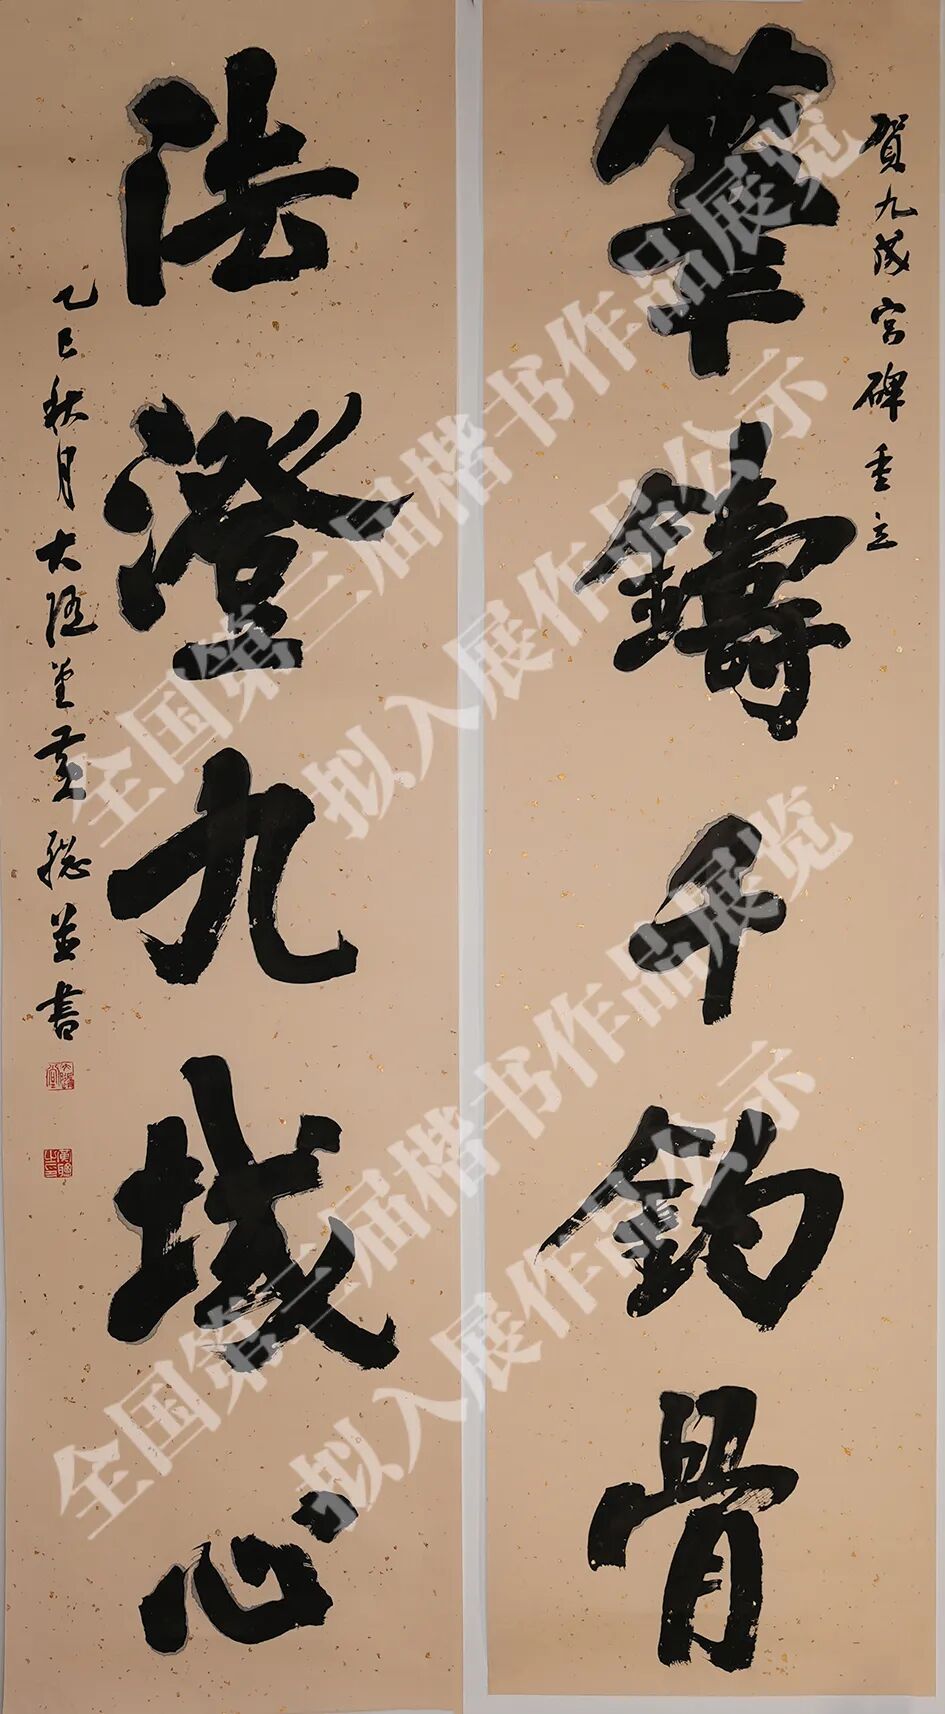 賀九成宮碑重立
筆鑄千鈞骨
法澄九域心
乙巳秋月大隱堂黃聰並書
全国第三届楷书作品展览
拟入展作品公示
全国第三届楷书作品展览
拟入展作品公示